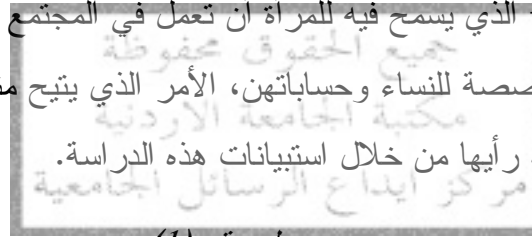 الذي يسمح فيه للمرأة أن تعمل في المجتمع
جميع الحقوق محفوظة
صصة للنساء وحساباتهن، الأمر الذي يتيح
مكتبة الجامعة الاردنية
رأيها من خلال استبيانات هذه الدراسة.
مركز ايداع الرسائل الجامعية
(1)